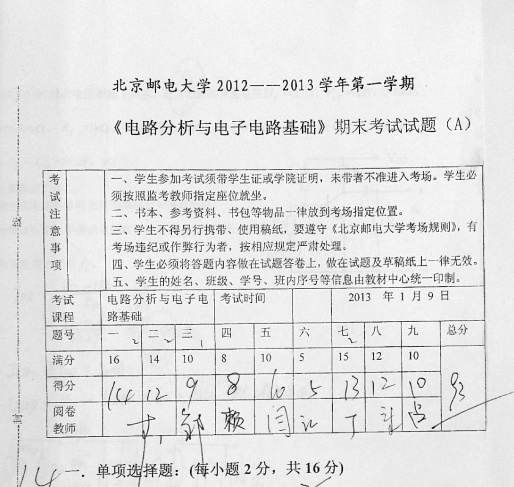 北京邮电大学2012——2013学年第一学期
《电路分析与电子电路基础》期末考试试题（A）
考试注意事项
一、学生参加考试须带学生证或学院证明，未带者不准进入考场。学生必
须按照监考教师指定座位就坐。
二、书本、参考资料、书包等物品一律放到考场指定位置。
三、学生不得另行携带、使用稿纸，要遵守《北京邮电大学考场规则》，有
考场违纪或作弊行为者，按相应规定严肃处理。
四、学生必须将答题内容做在试题答卷上，做在试题及草稿纸上一律无效。
五、学生的姓名、班级、学号、班内序号等信息由教材中心统一印制。
考试课程 电路分析与电子电路基础 考试时间 2013 年 1 月 9 日
题号 一 二 三 四 五 六 七 八 九 总分
满分 16 14 10 8 10 5 15 12 10
得分 14 12 9 8 10 5 13 12 10 93
阅卷教师 赖 闫 丁
14 一．单项选择题：(每小题 2 分，共 16 分)